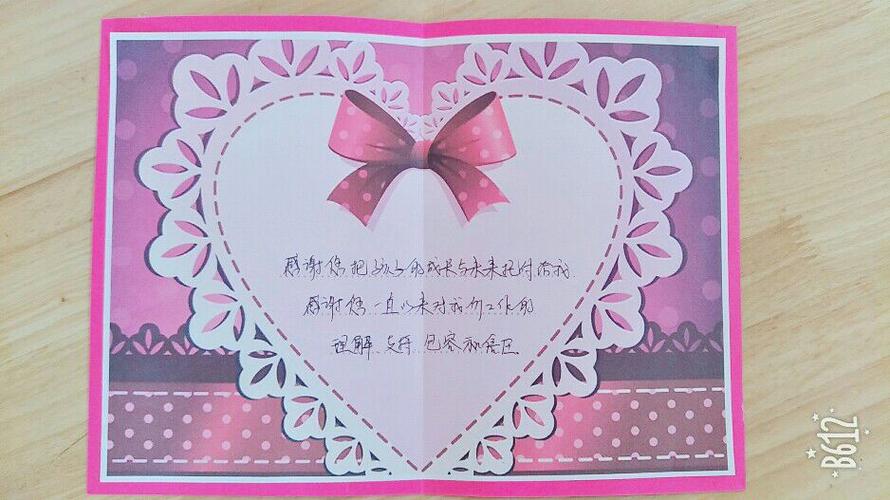 感谢您把孩子的成长与未来托付给我
感谢您一直以来对我们工作的
理解 支持 包容和信任
B612